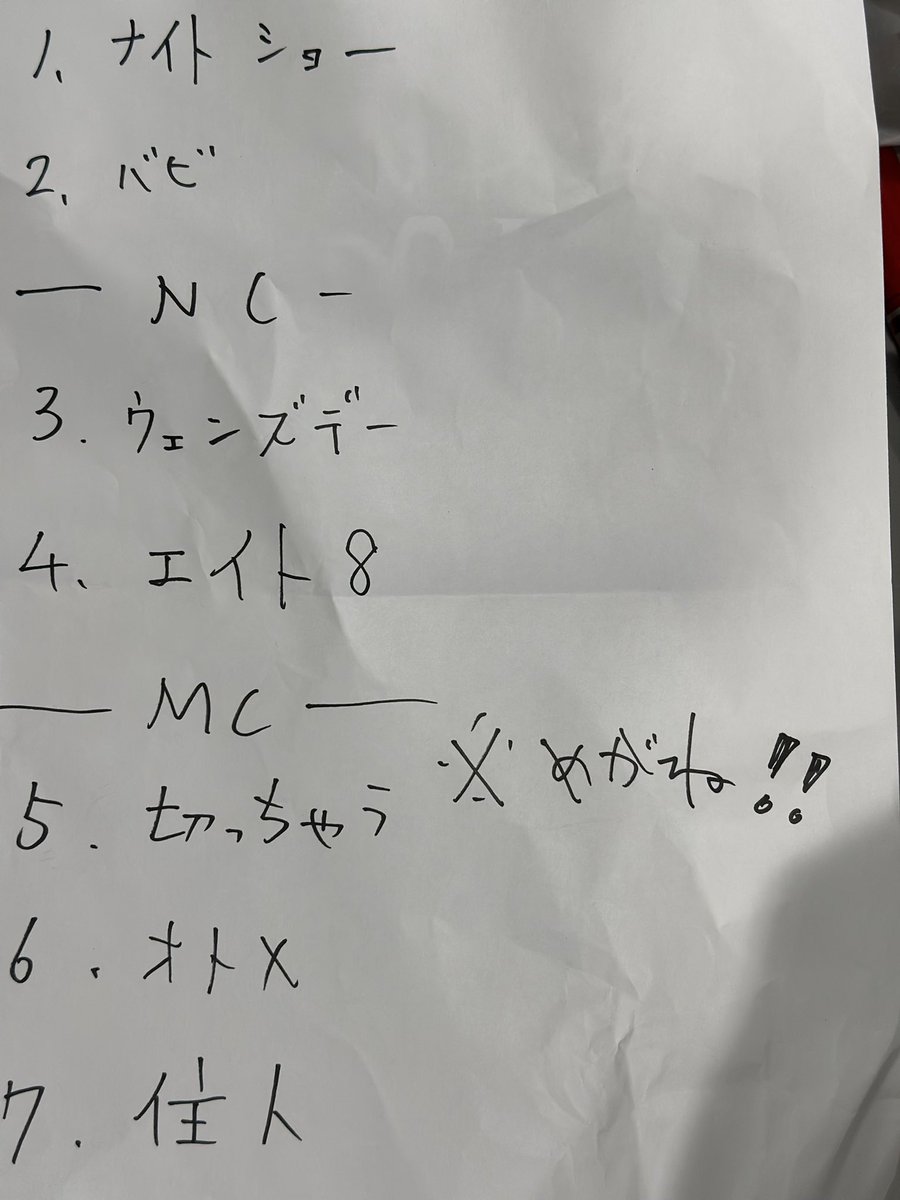 1. ナイトショー
2. バビ
— NC -
3. ウェンズデー
4. エイト8
— MC —
※めがね!!
5. 切っちゃう
6. オトメ
7. 住人